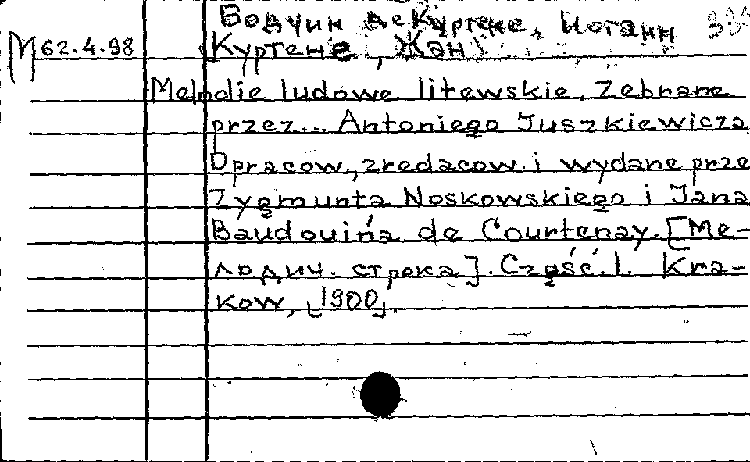 Бодуин де Куртене, Иоганн
M 62.4.98 (Куртене, Жан)
Melodie ludowe litewskie. Zebrane
przez... Antoniego Juszkiewicza
Opracow., zredacow. i wydane prze
Zygmunta Noskowskiego i Jana
Baudouińa de Courtenay. [Ме-
лодич. строка]. Część. 1. Kra-
kow, [1900].